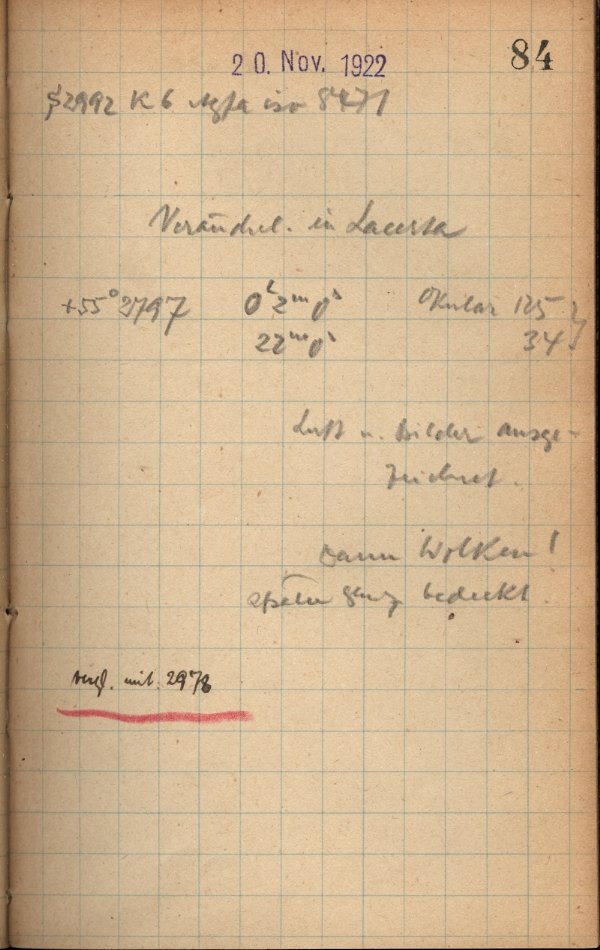 20. Nov. 1922 84
2992 K 6 Agfa iso 8471
Veränderl. in Lacerta
+55° 2797 0ʰ 2ᵐ 0ˢ Okular 125
22ᵐ 0ˢ 34
Luft u. Bilder ausge-
zeichnet.
Dann Wolken!
später ganz bedeckt.
vergl. mit. 2978